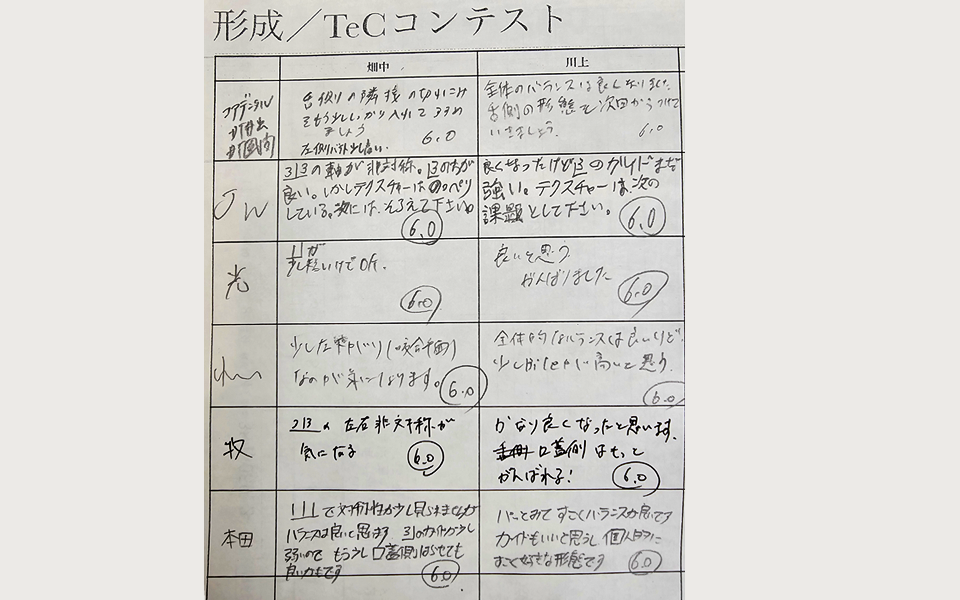 形成／TeCコンテスト
畑中
川上
舌側の隣接の切れ込み
をもう少ししっかり入れて
ましょう
6.0
全体のバランスは良くなりました
舌側の形態を次回からつけて
いきましょう。
6.0
JW
3|3の軸が非対称。|3の方が
良い。しかしテクスチャーはのっぺり
している。次には、そろえて下さい。
6.0
良くなったけど|3のガイドまだ
強い。テクスチャーは、次の
課題として下さい。
6.0
光
1|が
少し短いけどOK.
6.0
良いと思う
がんばりました
6.0
少し左 (咬合平面)
なのが気になります。
6.0
全体的なバランスは良いけど
少し が高いと思う.
6.0
牧
3|3の左右非対称が
気になる
6.0
かなり良くなったと思います.
口蓋側はもっと
がんばれる!
6.0
本田
1|1で対称性が少し見られませんが
バランスは良いと思います 3|のガイドが少し
弱いので もう少し口蓋側 はらせても
良いかもです
6.0
パーッとみて すごくバランスが良いです
ガイドもいいと思うし 個人的に
すごく好きな形態です
6.0